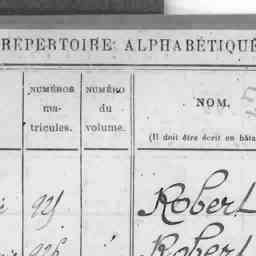 RÉPERTOIRE ALPHABÉTIQUE
NUMÉROS
ma-
tricules.
NUMÉRO
du
volume.
NOM.
(Il doit être écrit en bâta
925 Robert
926 Robert